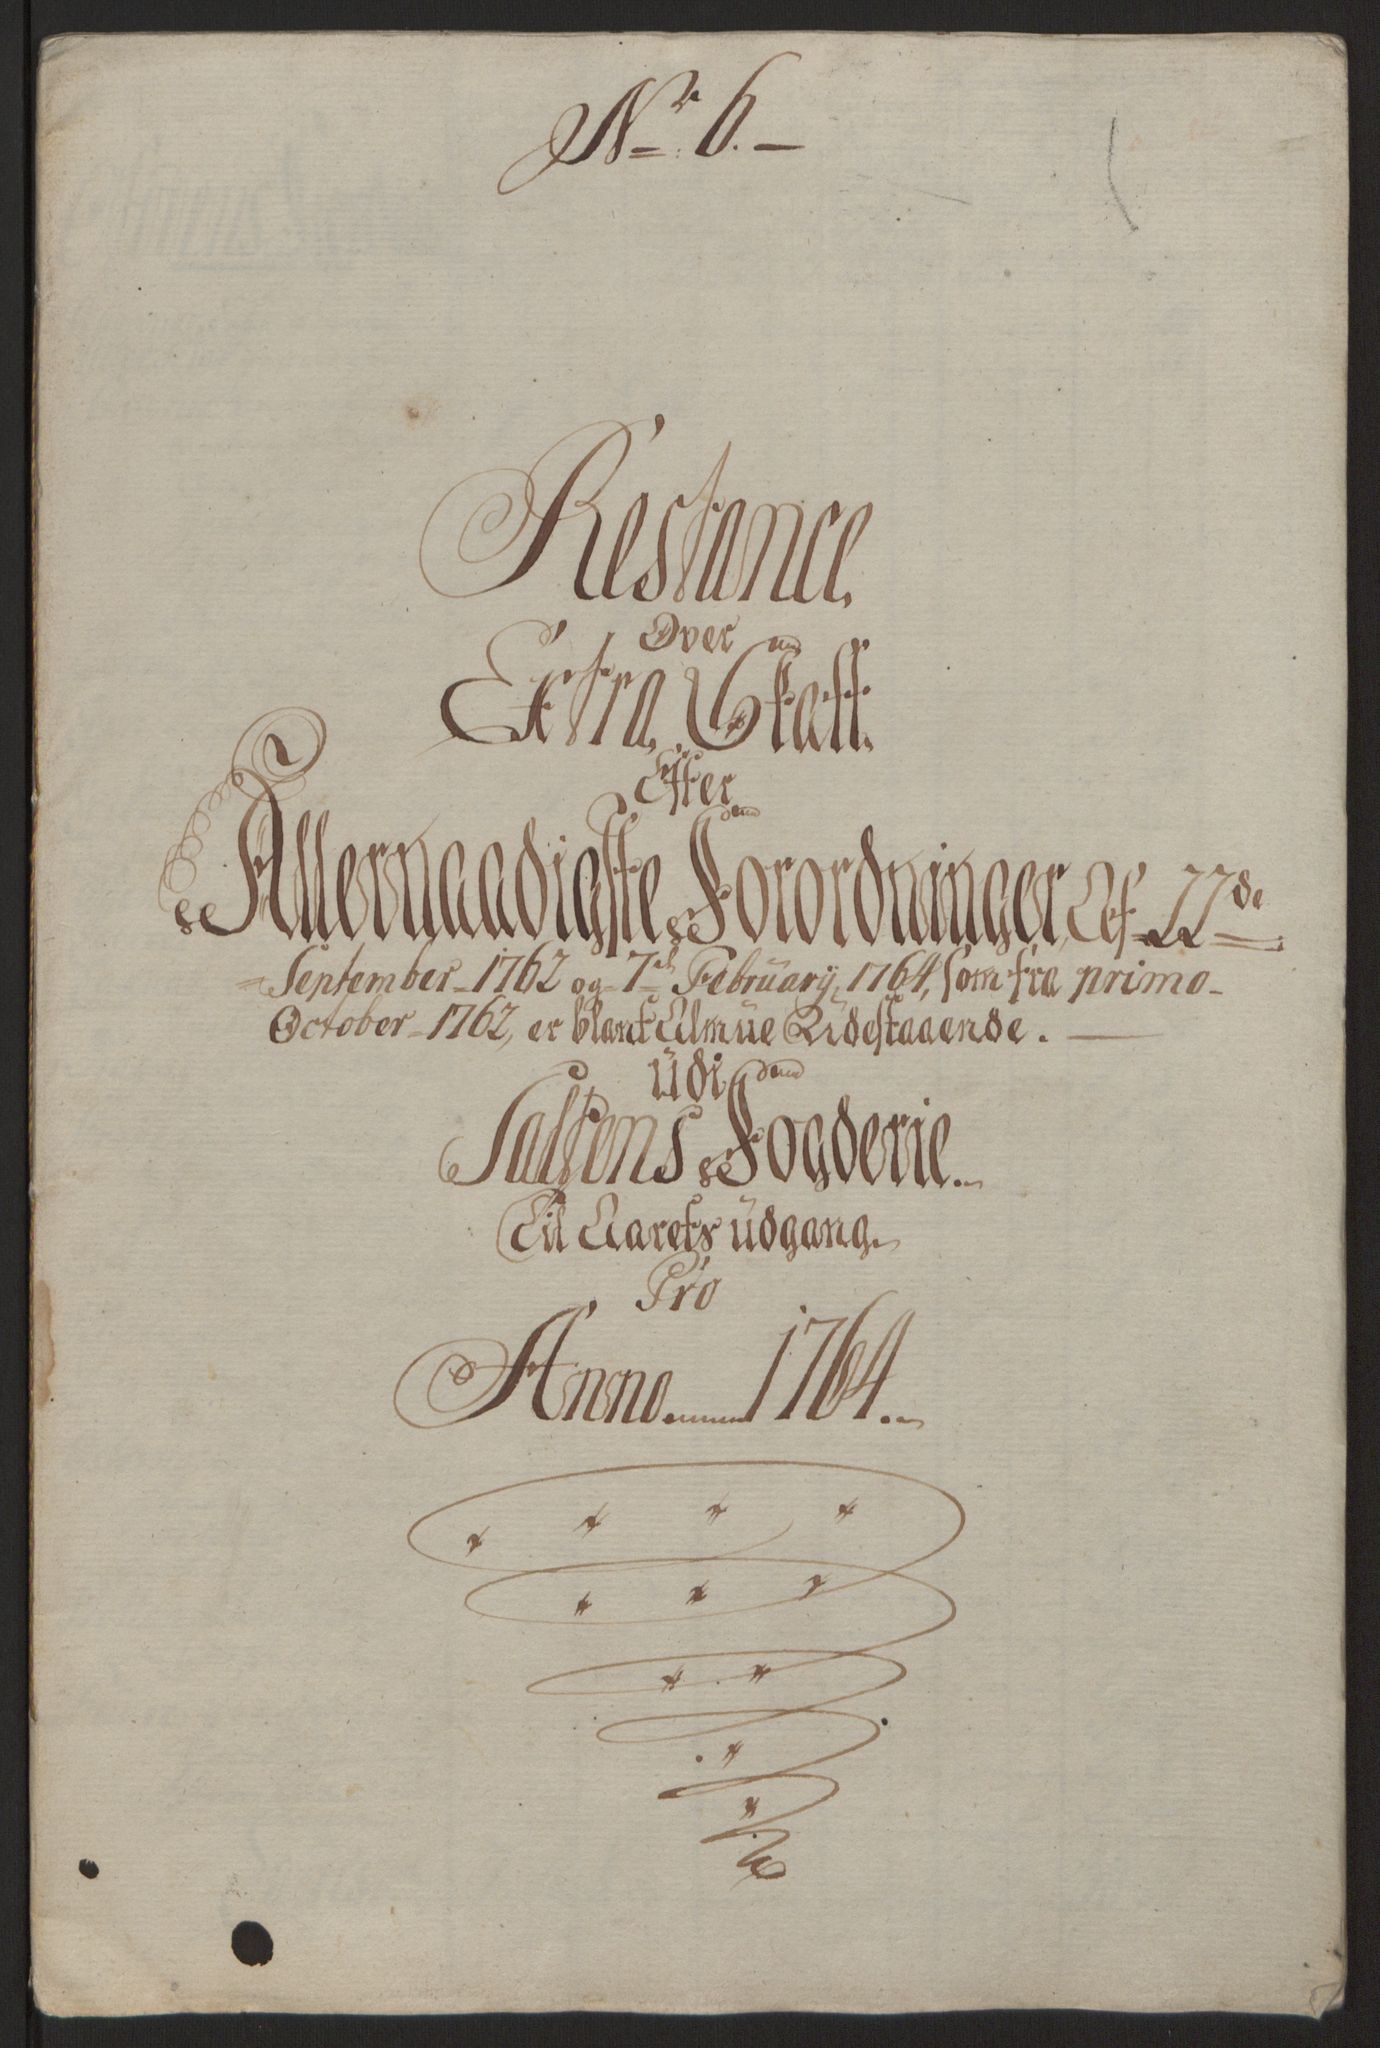 No. 6.
Restance
Over
Extra Skatt
Efter
Allernaadigste Forordninger, Af 22de
September 1762 og 7de February 1764, som fra primo
October 1762, er blant Almue Udestaaende.
udi
Saltens Fogderie
Til Aarets udgang
Pro
Anno 1764.